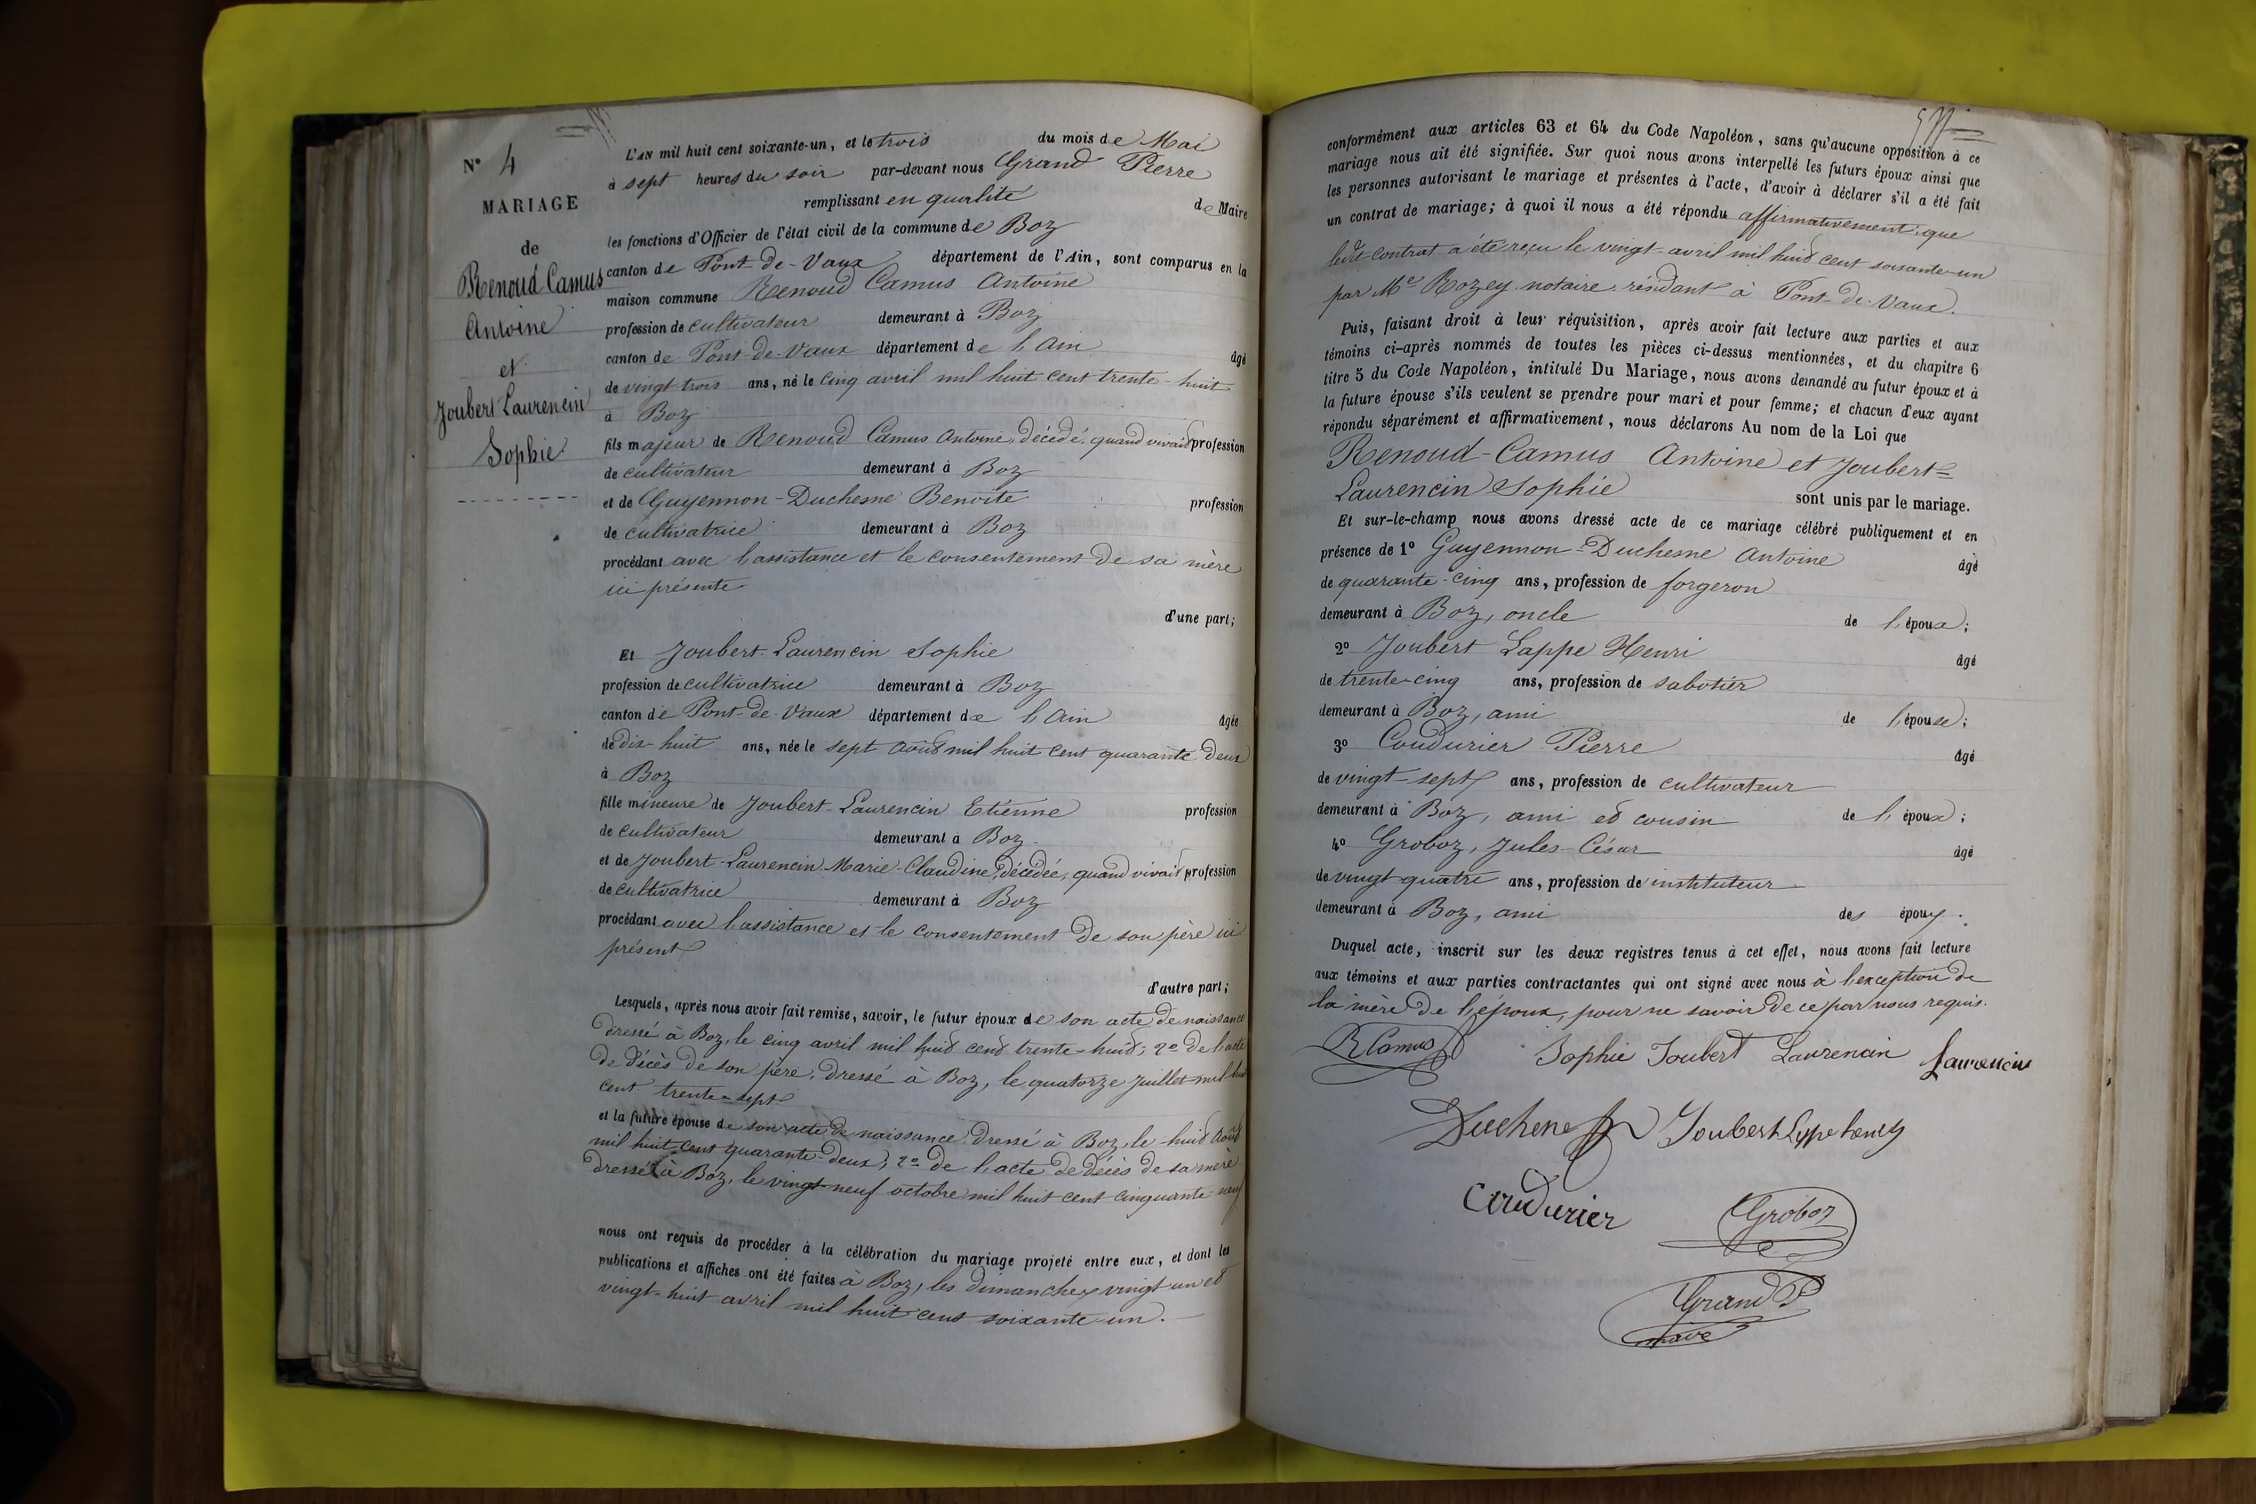 N° 4
MARIAGE
de
Renoud Camus
Antoine
et
Joubert Laurencin
Sophie
L'AN mil huit cent soixante-un, et le trois du mois de Mai
à sept heures du soir par-devant nous Grand Pierre
remplissant en qualité de Maire
les fonctions d'Officier de l'état civil de la commune de Boz
canton de Pont-de-Vaux département de l'Ain, sont comparus en la
maison commune Renoud Camus Antoine
profession de cultivateur demeurant à Boz
canton de Pont-de-Vaux département de l'Ain âgé
de vingt-trois ans, né le cinq avril mil huit cent trente-huit
à Boz
fils majeur de Renoud Camus Antoine, décédé, quand vivait profession
de cultivateur demeurant à Boz
et de Guyennon-Duchesne Benoite profession
de cultivatrice demeurant à Boz
procédant avec l'assistance et le consentement de sa mère
ici présente
d'une part;
Et Joubert-Laurencin Sophie
profession de cultivatrice demeurant à Boz
canton de Pont-de-Vaux département de l'Ain âgée
de dix-huit ans, née le sept août mil huit cent quarante deux
à Boz
fille mineure de Joubert-Laurencin Etienne profession
de cultivateur demeurant à Boz
et de Joubert-Laurencin Marie-Claudine, décédée, quand vivait profession
de cultivatrice demeurant à Boz
procédant avec l'assistance et le consentement de son père ici
présent
d'autre part;
Lesquels, après nous avoir fait remise, savoir, le futur époux de son acte de naissance
dressé à Boz, le cinq avril mil huit cent trente-huit; 2° de l'acte
de décès de son père, dressé à Boz, le quatorze juillet mil huit
cent trente-sept
et la future épouse de son acte de naissance dressé à Boz, le huit août
mil huit cent quarante-deux; 2° de l'acte de décès de sa mère
dressé à Boz, le vingt-neuf octobre mil huit cent cinquante-neuf
nous ont requis de procéder à la célébration du mariage projeté entre eux, et dont les
publications et affiches ont été faites à Boz, les dimanches vingt-un et
vingt-huit avril mil huit cent soixante-un.
conformément aux articles 63 et 64 du Code Napoléon, sans qu'aucune opposition à ce
mariage nous ait été signifiée. Sur quoi nous avons interpellé les futurs époux ainsi que
les personnes autorisant le mariage et présentes à l'acte, d'avoir à déclarer s'il a été fait
un contrat de mariage; à quoi il nous a été répondu affirmativement; que
ledit contrat a été reçu le vingt-avril mil huit cent soixante-un
par Me Rozey notaire résidant à Pont-de-Vaux.
Puis, faisant droit à leur réquisition, après avoir fait lecture aux parties et aux
témoins ci-après nommés de toutes les pièces ci-dessus mentionnées, et du chapitre 6
titre 5 du Code Napoléon, intitulé Du Mariage, nous avons demandé au futur époux et à
la future épouse s'ils veulent se prendre pour mari et pour femme; et chacun d'eux ayant
répondu séparément et affirmativement, nous déclarons Au nom de la Loi que
Renoud-Camus Antoine et Joubert=
Laurencin Sophie sont unis par le mariage.
Et sur-le-champ nous avons dressé acte de ce mariage célébré publiquement et en
présence de 1° Guyennon-Duchesne Antoine âgé
de quarante-cinq ans, profession de forgeron
demeurant à Boz, oncle de l'époux;
2° Joubert Lappe Henri âgé
de trente-cinq ans, profession de sabotier
demeurant à Boz, ami de l'épouse;
3° Coudurier Pierre âgé
de vingt-sept ans, profession de cultivateur
demeurant à Boz, ami et cousin de l'époux;
4° Groboz, Jules-César âgé
de vingt quatre ans, profession de instituteur
demeurant à Boz, ami des époux.
Duquel acte, inscrit sur les deux registres tenus à cet effet, nous avons fait lecture
aux témoins et aux parties contractantes qui ont signé avec nous à l'exception de
la mère de l'époux, pour ne savoir de ce par nous requis.
R Camus Sophie Joubert Laurencin Laurencin
Duchene Joubert Lappe henry
Coudurier Groboz
Grand P
maire